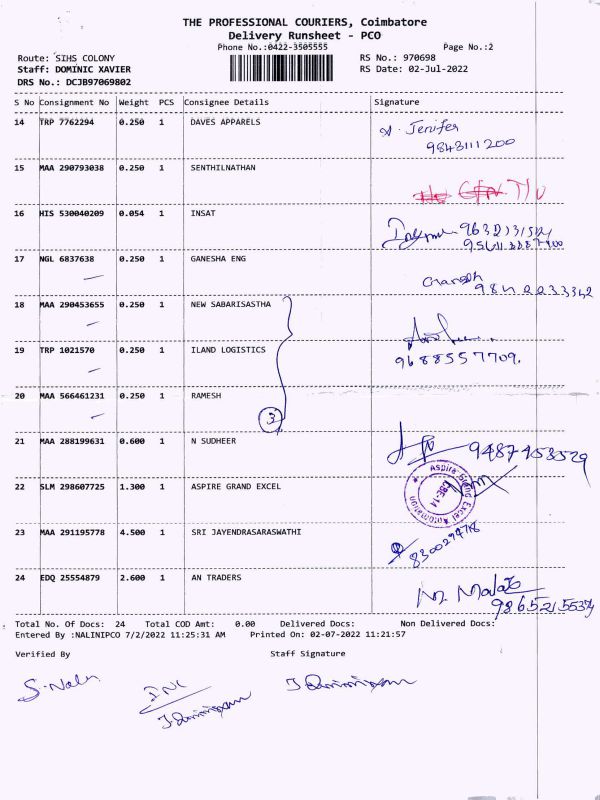 THE PROFESSIONAL COURIERS, Coimbatore
Delivery Runsheet - PCO
Phone No.:0422-3505555 Page No.:2
Route: SIHS COLONY RS No.: 970698
Staff: DOMINIC XAVIER RS Date: 02-Jul-2022
DRS No.: DCJB97069802
S No Consignment No Weight PCS Consignee Details Signature
14 TRP 7762294 0.250 1 DAVES APPARELS
A. Jenifer
9843111200
15 MAA 290793038 0.250 1 SENTHILNATHAN
16 HIS 530040209 0.054 1 INSAT
17 NGL 6837638 0.250 1 GANESHA ENG
Ganesh
18 MAA 290453655 0.250 1 NEW SABARISASTHA
19 TRP 1021570 0.250 1 ILAND LOGISTICS
9688557709.
20 MAA 566461231 0.250 1 RAMESH
3
21 MAA 288199631 0.600 1 N SUDHEER
9487453529
22 SLM 298607725 1.300 1 ASPIRE GRAND EXCEL
Aspire Grand Excel Automation
CBE-14
23 MAA 291195778 4.500 1 SRI JAYENDRASARASWATHI
24 EDQ 25554879 2.600 1 AN TRADERS
Total No. Of Docs: 24 Total COD Amt: 0.00 Delivered Docs: Non Delivered Docs:
Entered By :NALINIPCO 7/2/2022 11:25:31 AM Printed On: 02-07-2022 11:21:57
Verified By Staff Signature